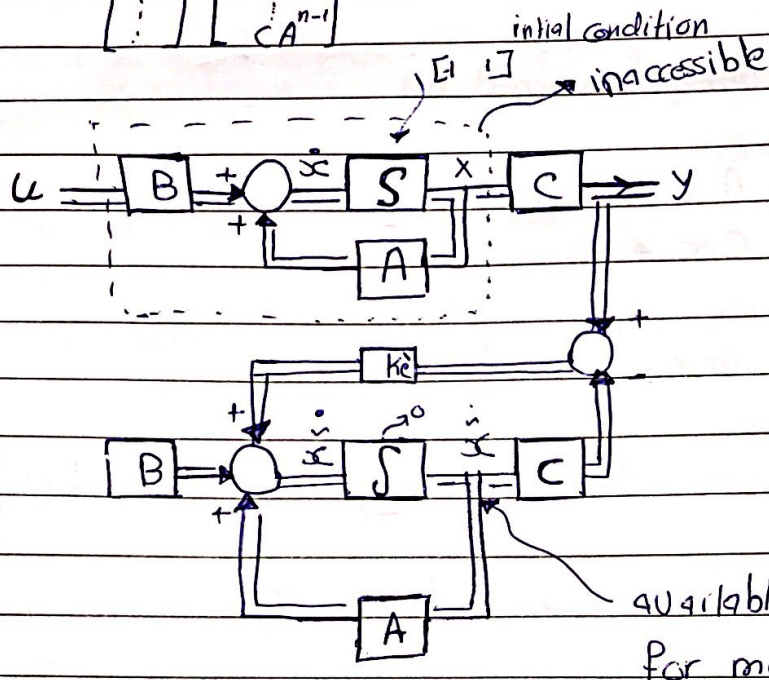 CA^{n-1}
intial condition
[1 1]
inaccessible
u B + ẋ S x C y
+ A
+
Ke -
+ ẋ 0 x
B ∫ C
+
A
availabl
for m